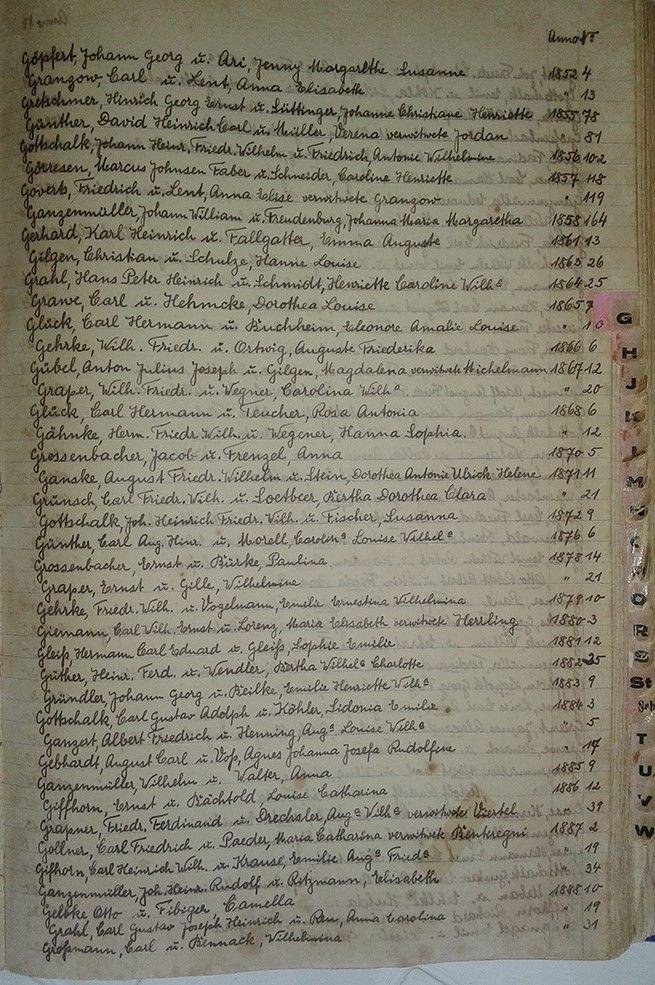 Anno Nº
Göpfert, Johann Georg u. Ari, Jenny Margarethe Susanne 1852 4
Granzow, Carl u. Lent, Anna Elisabeth " 13
Gretschmer, Hinrich Georg Ernst u. Lüttinger, Johanne Christiane Henriette 1855 78
Günther, David Heinrich Carl u. Müller, Verena verwitwete Jordan " 81
Gottschalk, Johann Heinr. Friedr. Wilhelm u. Friedrich, Antonie Wilhelmine 1856 102
Görresen, Marcus Johnsen Faber u. Schneider, Caroline Henriette 1857 118
Goverts, Friedrich u. Lent, Anna Elise verwitwete Granzow " 119
Ganzenmüller, Johann William u. Freudenburg, Johanna Maria Margaretha 1858 164
Gerhard, Karl Heinrich u. Fallgatter, Emma Auguste 1861 13
Gilgen, Christian u. Schulze, Hanne Louise 1863 26
Grahl, Hans Peter Heinrich u. Schmidt, Henriette Caroline Wilhe 1864 25
Grawe, Carl u. Hehmcke, Dorothea Louise 1865 7
Glück, Carl Hermann u. Buchheim, Eleonore Amalie Louise " 10
Gehrke, Wilh. Friedr. u. Ortwig, Auguste Friederika 1866 6
Gübel, Anton Julius Joseph u. Gilgen, Magdalena verwitwete Michelmann 1867 12
Graper, Wilh. Friedr. u. Wegner, Carolina Wilha " 20
Glück, Carl Hermann u. Teucher, Rosa Antonia 1868 6
Gähnke, Herm. Friedr. Wilh. u. Wegener, Hanna Sophia " 12
Grossenbacher, Jacob u. Frenzel, Anna 1870 5
Ganske, August Friedr. Wilhelm u. Stein, Dorothea Antonie Ulrich Helene 1871 11
Grünsch, Carl Friedr. Wilh. u. Loetbeer, Bertha Dorothea Clara " 21
Gottschalk, Joh. Heinrich Friedr. Wilh. u. Fischer, Susanna 1872 9
Günther, Carl Aug. Hinr. u. Morell, Caroline Louise Wilhele 1876 6
Grossenbacher, Ernst u. Bürke, Paulina 1878 14
Graper, Ernst u. Gille, Wilhelmine " 21
Gehrke, Friedr. Wilh. u. Vogelmann, Emilie Ernestina Wilhelmina 1879 10
Giemann, Carl Wilh. Ernst u. Lorenz, Maria Elisabeth verwitwete Herrling 1880 3
Gleiß, Hermann Carl Eduard u. Gleiß, Sophie Emilie 1881 12
Güther, Heinr. Ferd. u. Wendler, Bertha Wilhele Charlotte 1882 25
Gründler, Johann Georg u. Beilke, Emilie Henriette Wilhe 1883 9
Gottschalk, Carl Gustav Adolph u. Köhler, Sidonia Emilie 1884 3
Ganzert, Albert Friedrich u. Henning, Auge Louise Wilhe " 5
Gebhardt, August Carl u. Voß, Agnes Johanna Josefa Rudolfine " 17
Ganzenmüller, Wilhelm u. Walter, Anna 1885 9
Giffhorn, Ernst u. Bächtold, Louise Catharina 1886 12
Grapner, Friedr. Ferdinand u. Drechsler, Auge Wilhe verwitwete Viertel " 39
Göllner, Carl Friedrich u. Paeder, Maria Catharina verwitwete Bienteregni 1887 2
Gifhorn, Carl Heinrich Wilh. u. Krause, Emilie Auge Friede " 19
Ganzenmüller, Joh. Heinr. Rudolf u. Ritzmann, Elisabeth " 34
Gelbke Otto u. Fibiger, Camella 1888 10
Grahl, Carl Gustav Joseph Heinrich u. Anna Carolina " 19
Großmann, Carl u. Bennack, Wilhelmina " 31
G
H
J
K
L
M
N
O
R
S
St
Sch
T
U
V
W